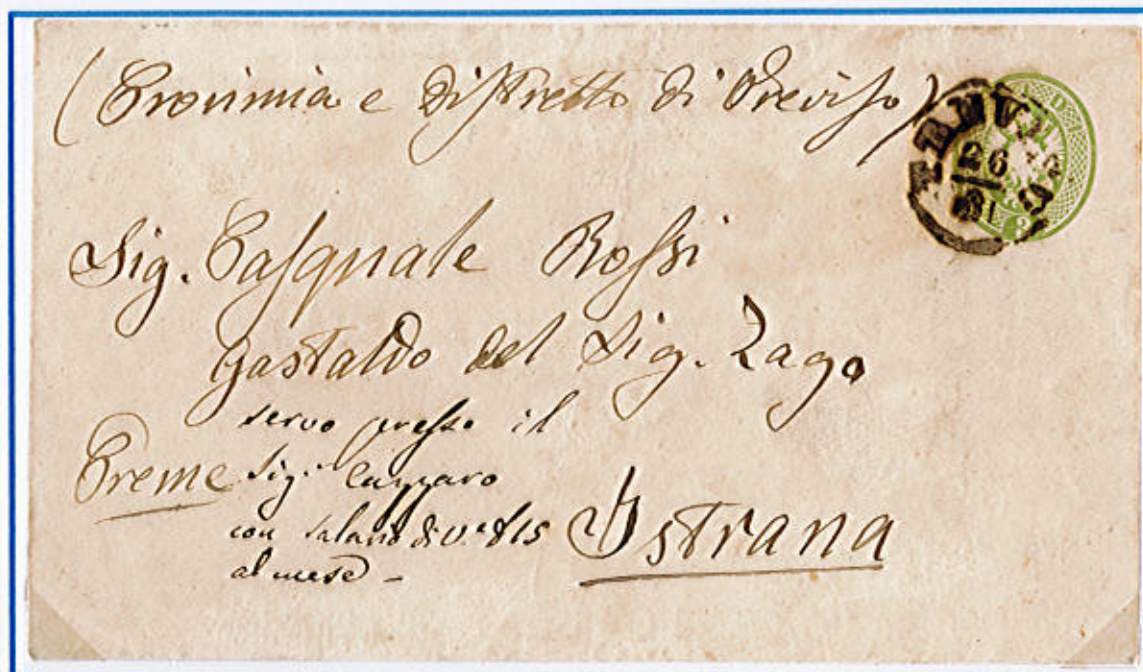 (Provincia e Distretto di Treviso)
Sig. Pasquale Rossi
gastaldo del Sig. Zago
servo presso il
Preme Sig.
con salario di
al mese -
Istrana
26